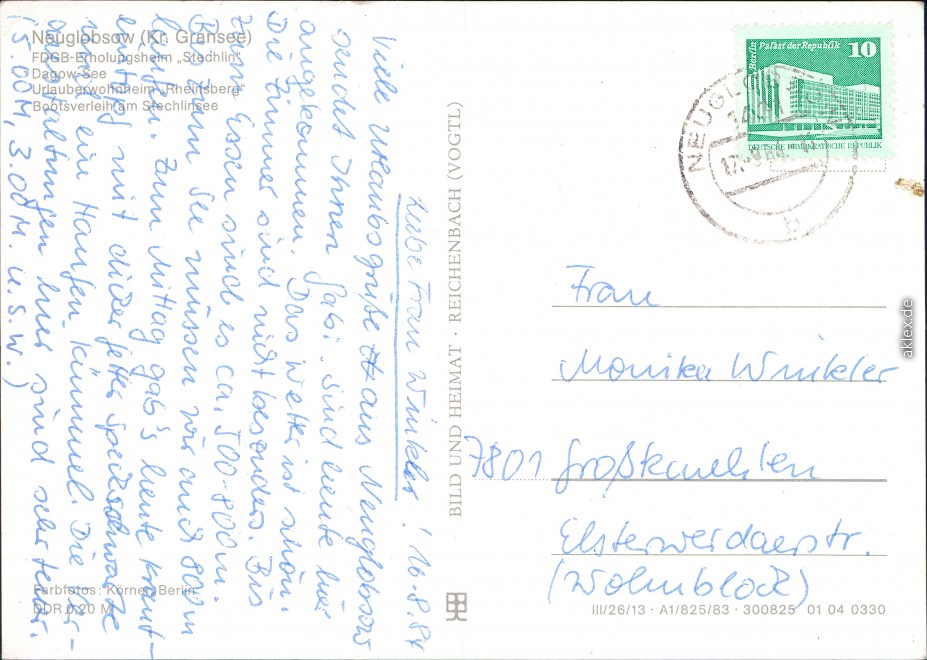 Neuglobsow (Kr. Gransee)
FDGB-Erholungsheim „Stechlin"
Dagow-See
Urlauberwohnheim „Rheinsberg"
Bootsverleih am Stechlinsee
Liebe Frau Winkler! 16.8.84
Viele Urlaubsgrüße aus Neuglobsow
sendet Ihnen Gabi. Sind heute hier
angekommen. Das Wetter ist schön.
Die Zimmer sind nicht besonders. Bis
zum Essen sind es ca. 500-800m.
Bis zum See müssen wir auch 800m
laufen. Zum Mittag gab's heute Kraut-
eintopf mit dicker fetter Speckschwarte
und ein Haufen Kümmel. Die
hier sind sehr teuer.
(5.00M, 3.00M u.s.w.)
Farbfotos: Körner, Berlin
DDR 0,20 M
BILD UND HEIMAT · REICHENBACH (VOGTL)
Berlin Palast der Republik 10
DEUTSCHE DEMOKRATISCHE REPUBLIK
b
Frau
Monika Winkler
7801 Großkmehlen
Elsterwerdaerstr.
(Wohnblock)
III/26/13 · A1/825/83 · 300825 01 04 0330
aklex.de